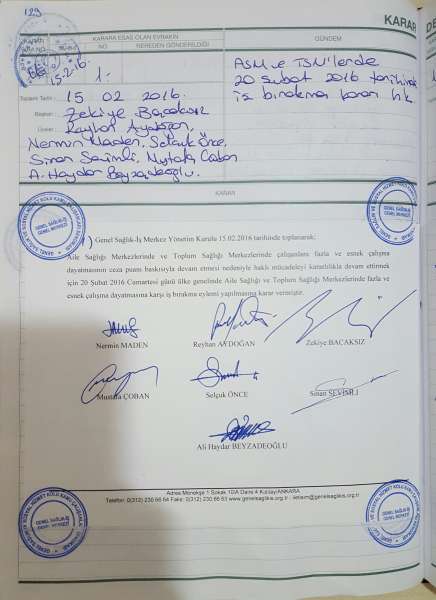 129
KARAR
KARARA ESAS OLAN EVRAKIN
GÜNDEM
NO
NEREDEN GÖNDERİLDİĞİ
1-
ASM ve TSM'lerde
20 Şubat 2016 tarihinde
iş bırakma kararı hk
15 02 2016.
Zekiye Bacaksız
Reyhan Aydoğan,
Nermin Maden, Selçuk Önce,
Sinan Sevimli, Mustafa Çoban
A. Haydar Beyzadeoğlu.
KARAR
1) Genel Sağlık-İş Merkez Yönetim Kurulu 15.02.2016 tarihinde toplanarak;
Aile Sağlığı Merkezlerinde ve Toplum Sağlığı Merkezlerinde çalışanlara fazla ve esnek çalışma
dayatmasının ceza puanı baskısıyla devam etmesi nedeniyle haklı mücadeleyi kararlılıkla devam ettirmek
için 20 Şubat 2016 Cumartesi günü ülke genelinde Aile Sağlığı ve Toplum Sağlığı Merkezlerinde fazla ve
esnek çalışma dayatmasına karşı iş bırakma eylemi yapılmasına karar vermiştir.
Nermin MADEN
Reyhan AYDOĞAN
Zekiye BACAKSIZ
Mustafa ÇOBAN
Selçuk ÖNCE
Sinan SEVİMLİ
Ali Haydar BEYZADEOĞLU
Adres:Menekşe 1 Sokak 10/A Daire 4 Kızılay/ANKARA
Telefon: 0(312) 230 66 64 Faks: 0(312) 230 66 63 www.genelsaglikis.org.tr - iletisim@genelsaglikis.org.tr
GENEL SAĞLIK-İŞ
GENEL MERKEZİ